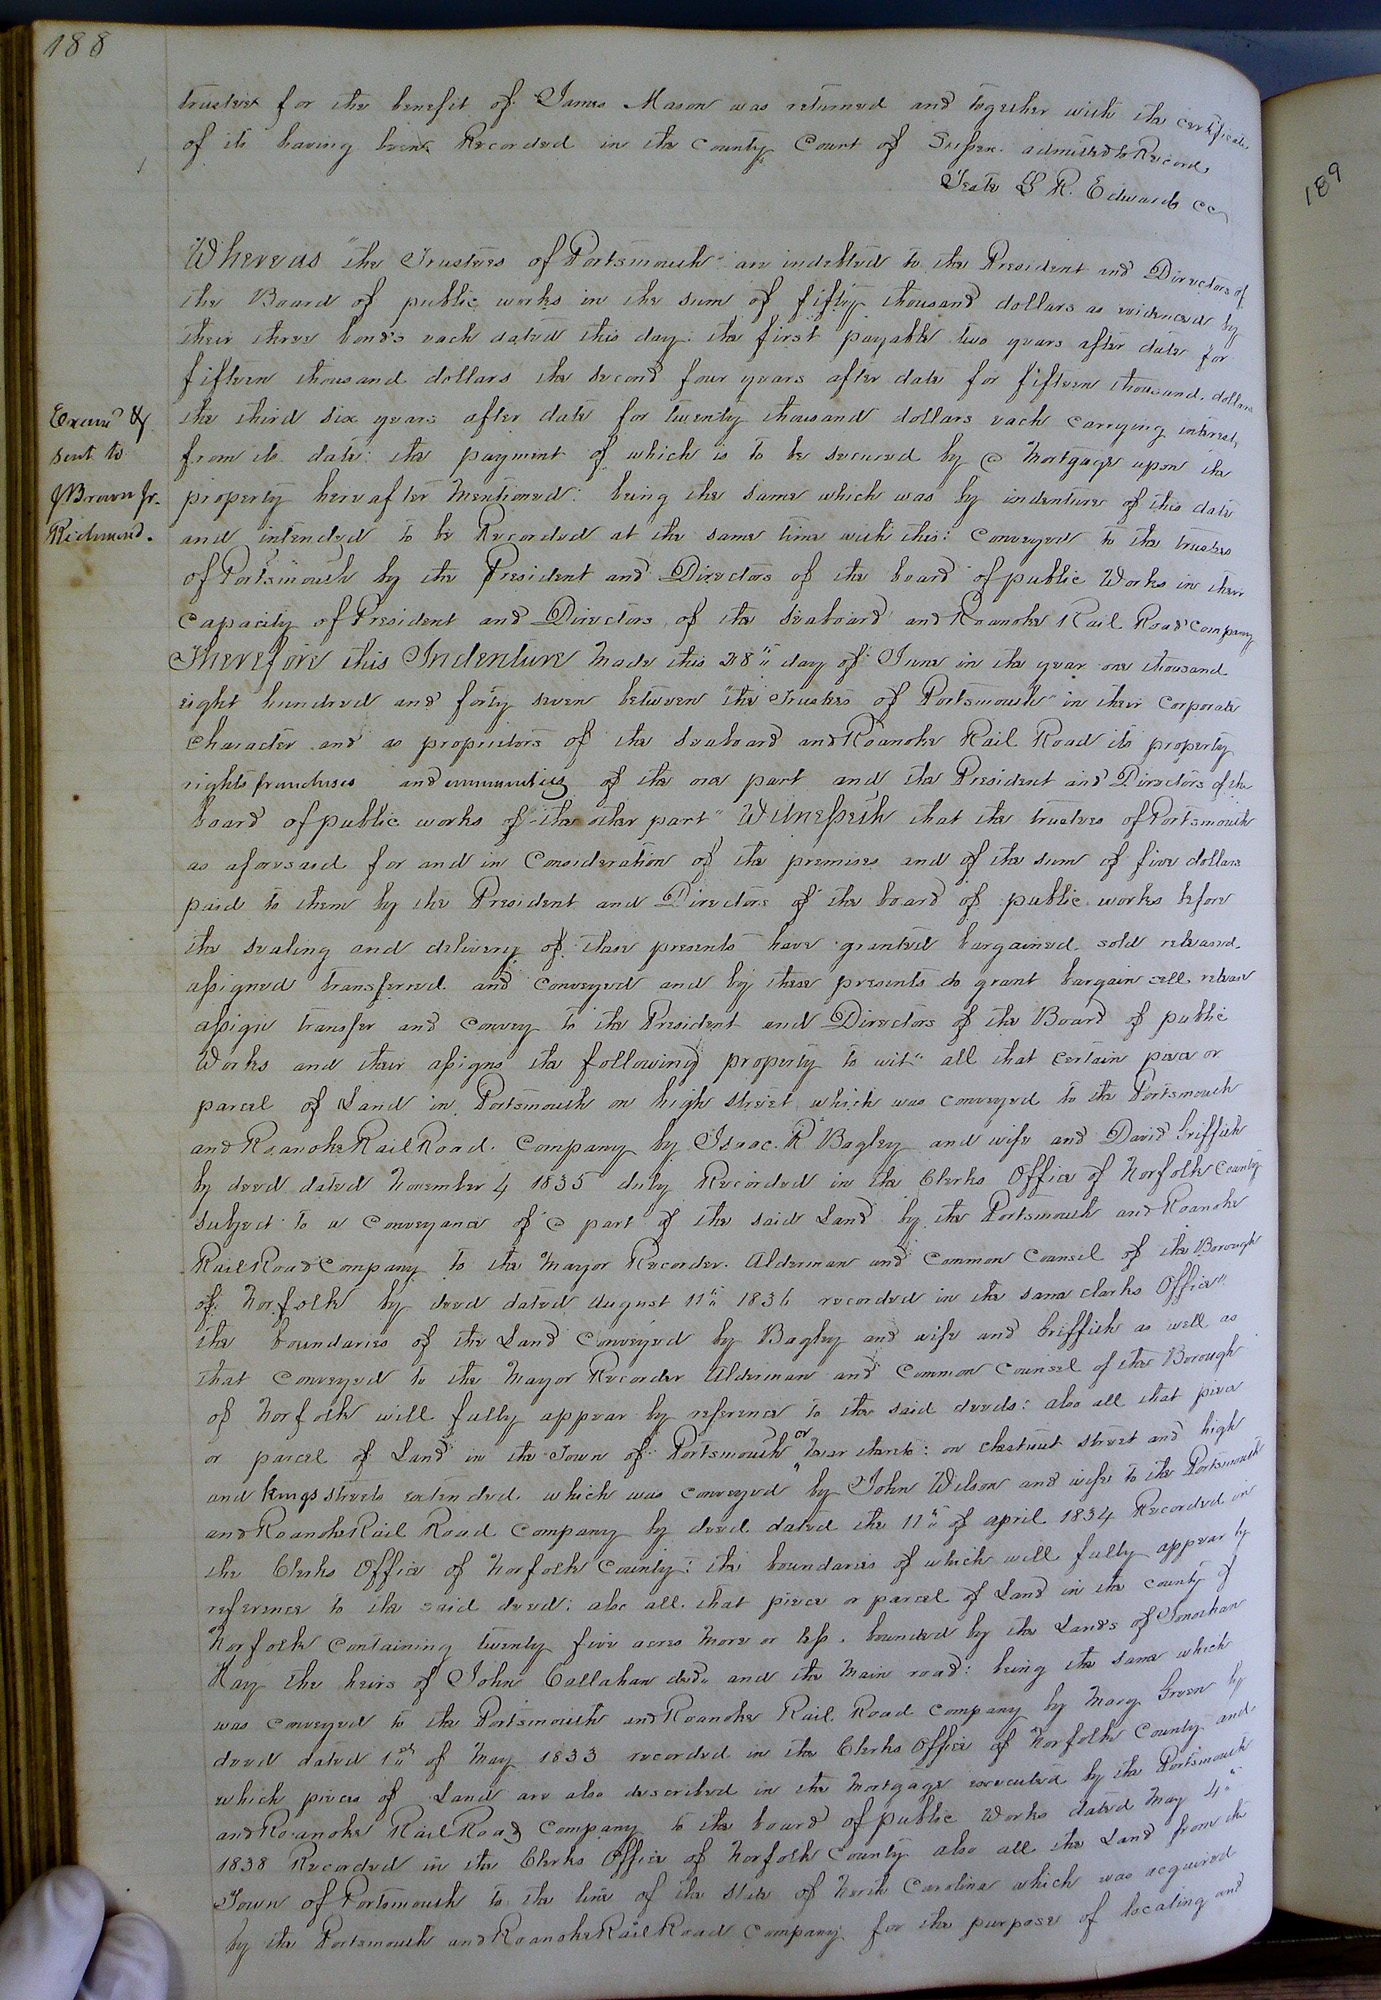 188
trustees for the benefit of James Mason was returned and together with the certificate
of its having been Recorded in the County Court of Sussex admitted to Record,
Teste L R. Edwards cc
Whereas "the Trustees of Portsmouth" are indebted to the President and Directors of
the Board of public works in the sum of fifty thousand dollars as evidenced by
their three bonds each dated this day: the first payable two years after date for
fifteen thousand dollars the second four years after date for fifteen thousand dollars
the third six years after date for twenty thousand dollars each carrying interest
from its date: the payment of which is to be secured by a Mortgage upon the
property hereafter mentioned: being the same which was by indenture of this date
and intended to be Recorded at the same time with this: Conveyed to the trustees
of Portsmouth by the President and Directors of the board of public Works in their
Capacity of President and Directors of the Seaboard and Roanoke Rail Road Company
Therefore this Indenture Made this 28th day of June in the year one thousand
eight hundred and forty seven between "the Trustees of Portsmouth in their Corporate
Character and as proprietors of the Seaboard and Roanoke Rail Road its property
rights franchises and immunities of the one part and the President and Directors of the
board of public works of the other part" Witnesseth that the trustees of Portsmouth
as aforesaid for and in Consideration of the premises and of the sum of five dollars
paid to them by the President and Directors of the board of public works before
the sealing and delivery of these presents have granted bargained sold released
assigned transferred and conveyed and by these presents do grant bargain sell release
assign transfer and convey to the President and Directors of the Board of public
Works and their assigns the following property to wit" all that certain piece or
parcel of Land in Portsmouth on high street which was conveyed to the Portsmouth
and Roanoke Rail Road Company by Isaac R Bagley and wife and David Griffith
by deed dated November 4 1835 duly Recorded in the Clerks Office of Norfolk County
subject to a conveyance of a part of the said Land by the Portsmouth and Roanoke
Rail Road Company to the Mayor Recorder Alderman and Common Counsil of the Borough
of Norfolk by deed dated August 11th 1836 recorded in the same clerks Office"
the boundaries of the Land Conveyed by Bagley and wife and Griffith as well as
that conveyed to the Mayor Recorder Alderman and Common Counsel of the Borough
of Norfolk will fully appear by reference to the said deeds: also all that piece
or parcel of Land in the Town of Portsmouth or near thereto: on chestnut street and high
and Kings streets extended which was conveyed by John Wilson and wife to the Portsmouth
and Roanoke Rail Road Company by deed dated the 11th of april 1834 Recorded in
the Clerks Office of Norfolk County: the boundaries of which will fully appear by
reference to the said deed: also all that piece or parcel of Land in the county of
Norfolk containing twenty five acres more or less. bounded by the Lands of Jonathan
Hay the heirs of John Callahan decd and the main road: being the same which
was conveyed to the Portsmouth and Roanoke Rail Road Company by Mary Green by
deed dated 1st of May 1833 recorded in the Clerks Office of Norfolk County and
which pieces of Land are also described in the Mortgage executed by the Portsmouth
and Roanoke Rail Road Company to the board of public Works dated May 4th
1838 Recorded in the Clerks Office of Norfolk County also all the Land from the
Town of Portsmouth to the line of the State of North Carolina which was acquired
by the Portsmouth and Roanoke Rail Road Company for the purpose of locating and
Examd &
sent to
J Brown Jr.
Richmond.
189